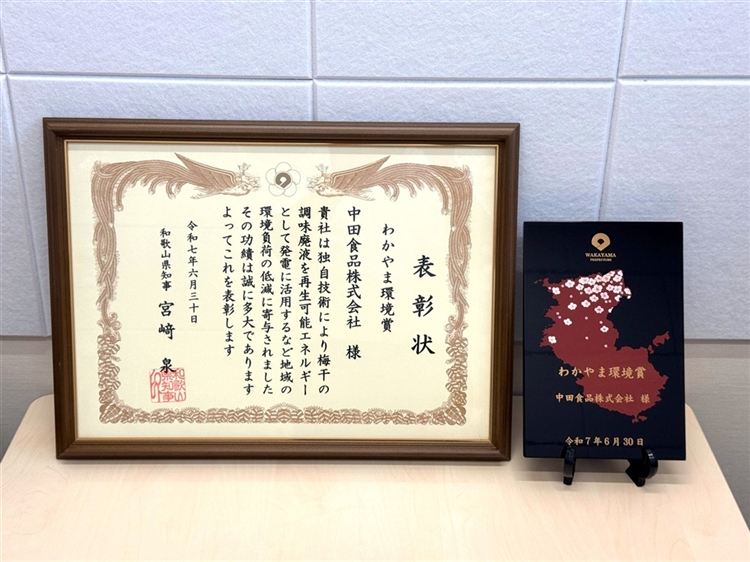 表彰状
わかやま環境賞
中田食品株式会社 様
貴社は独自技術により梅干の
調味廃液を再生可能エネルギー
として発電に活用するなど地域の
環境負荷の低減に寄与されました
その功績は誠に多大であります
よってこれを表彰します
令和七年六月三十日
和歌山県知事 宮﨑 泉
WAKAYAMA
PREFECTURE
わかやま環境賞
中田食品株式会社 様
令和7年6月30日